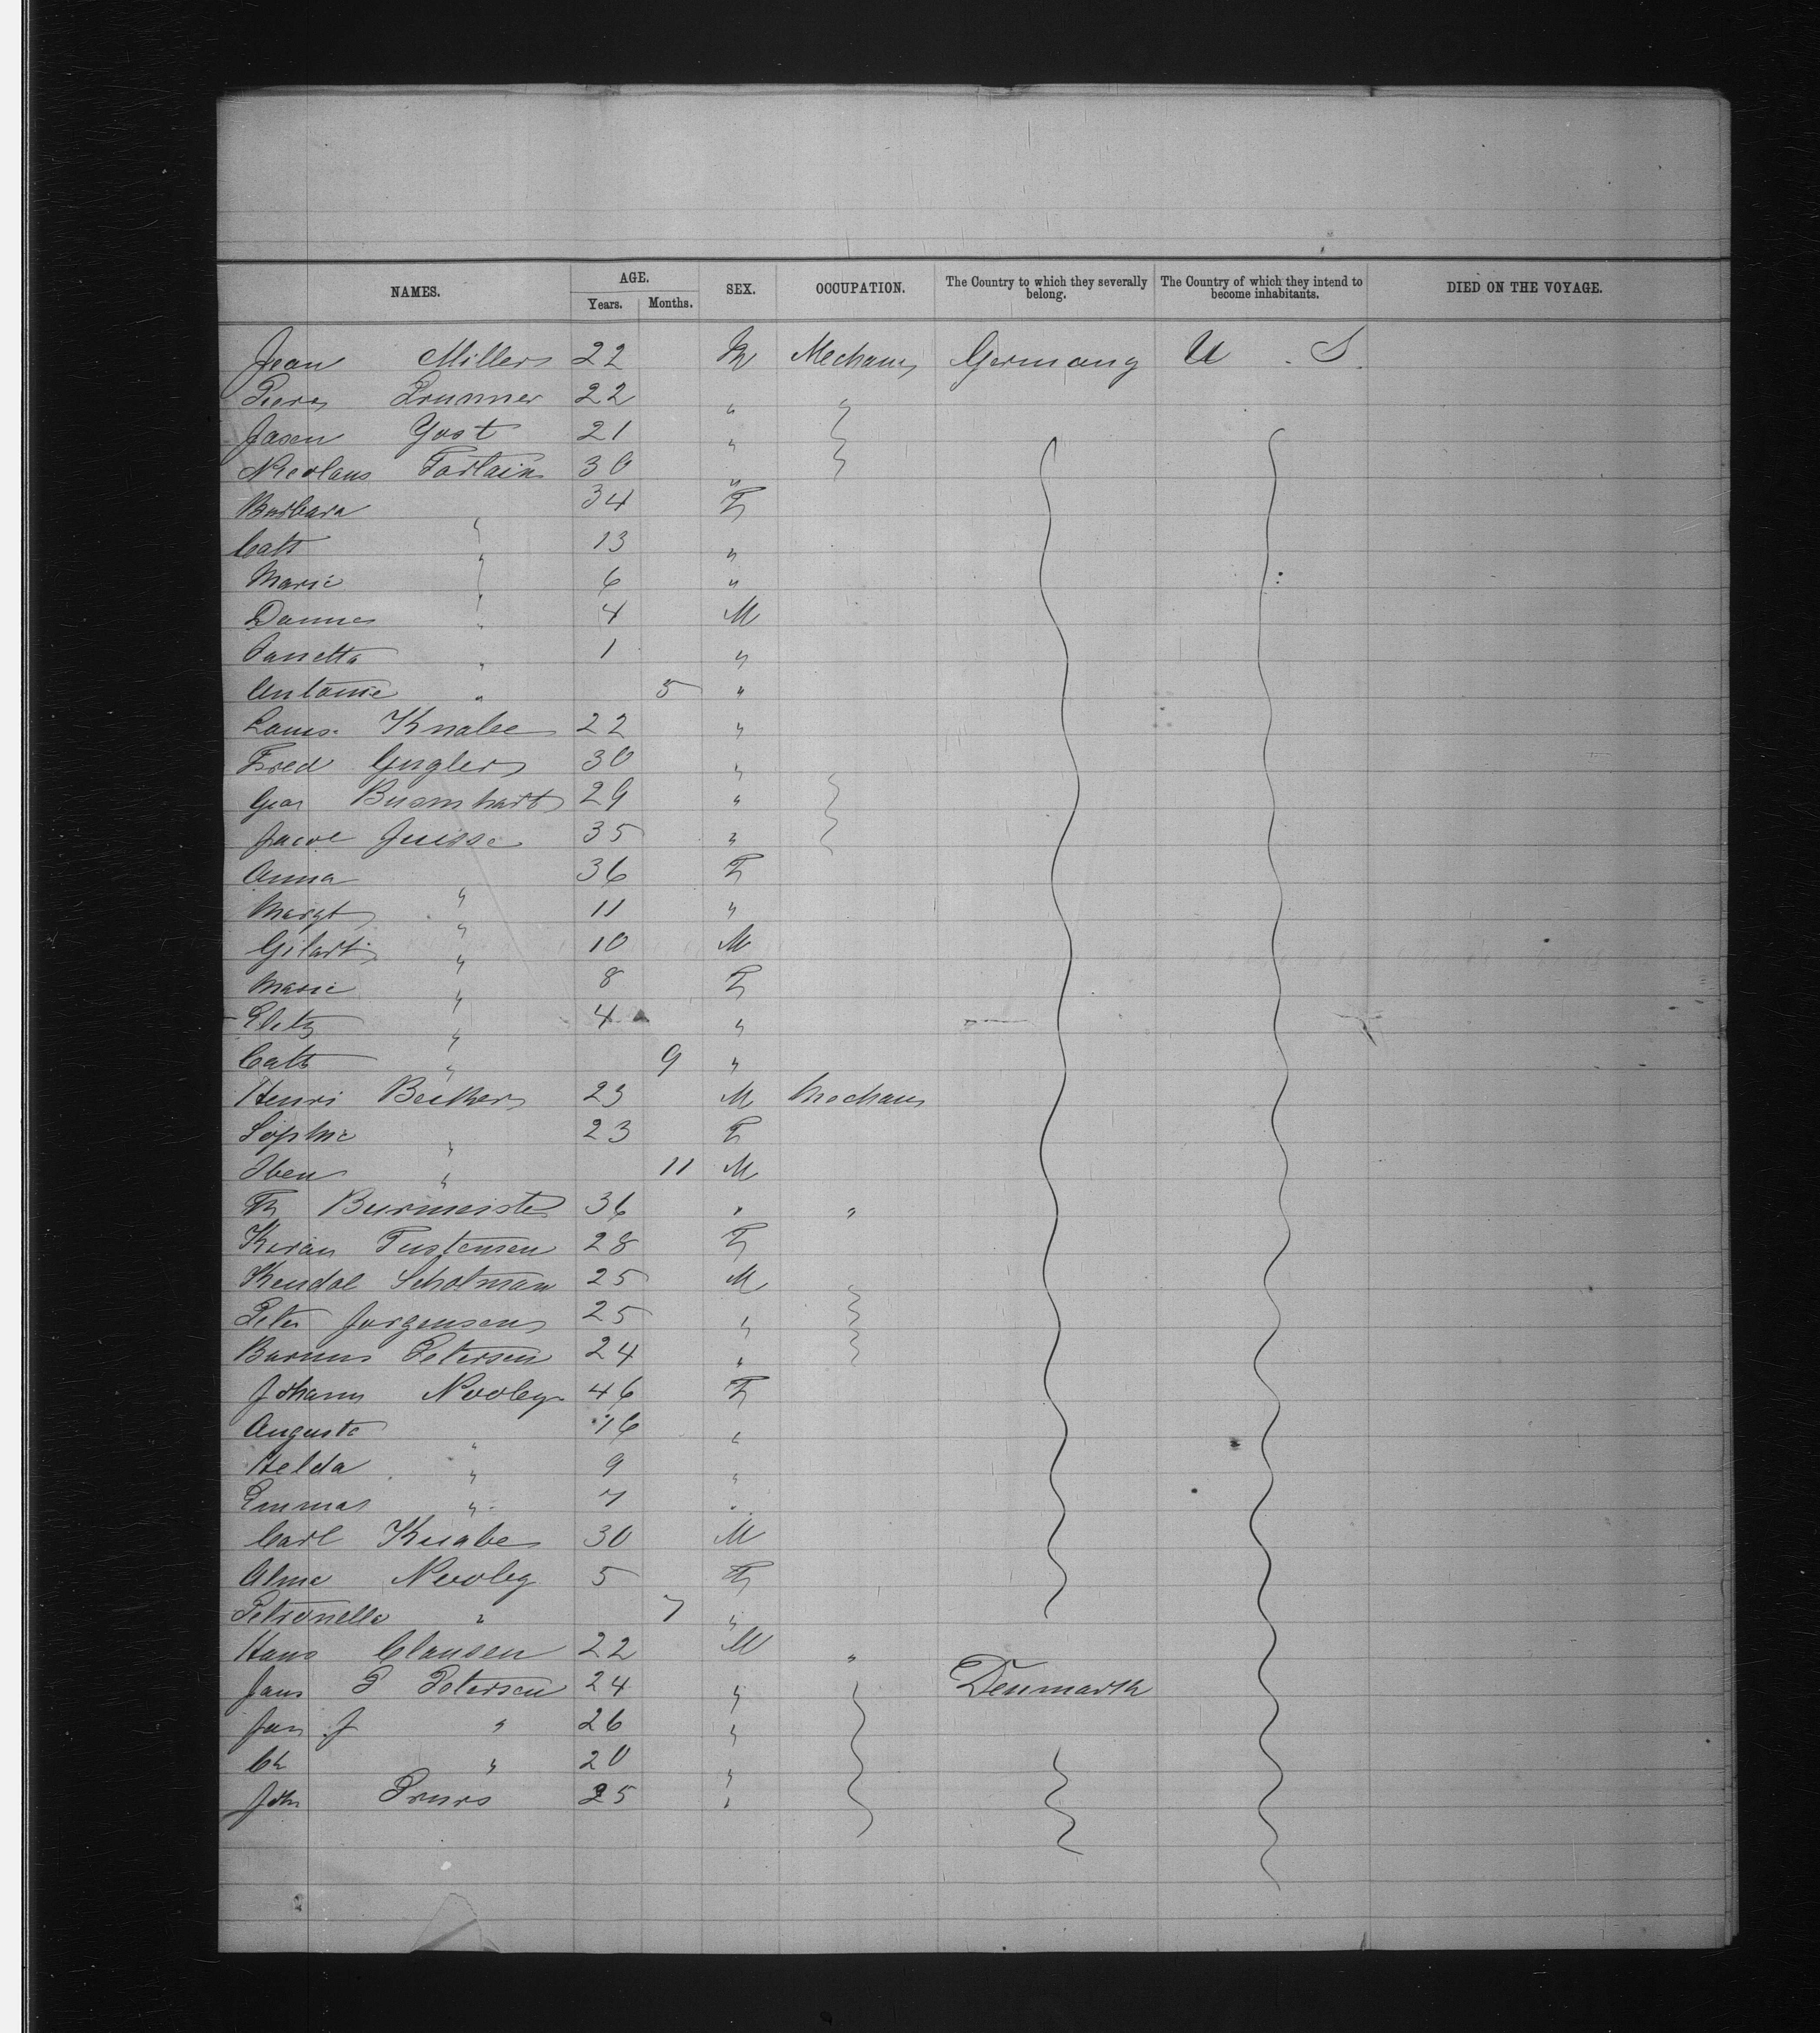 NAMES. AGE. Years. Months. SEX. OCCUPATION. The Country to which they severally belong. The Country of which they intend to become inhabitants. DIED ON THE VOYAGE.
Jean Miller 22 M Mechanic Germany U. S.
Pierre 22 "
Yost 21 "
Nicolaus 30 "
Barbara " 34 F
Cath " 13 "
Marie " 6 "
" 4 M
" 1 "
Antoine " 5 "
Louis Knabe 22 "
Fred Gugler 30 "
Geo 29 "
Jacob 35 "
Anna " 36 F
Margt " 11 "
" 10 M
Marie " 8 F
" 4 "
Cath " 9 "
Henri Becker 23 M Mechanic
Sophie " 23 F
" 11 M
Burmeister 36 " "
28 F
25 M
Peter Jorgensen 25 "
Petersen 24 "
Johann 46 F
Auguste " 16 "
Helda " 9 "
Emma " 7 "
Carl Knabe 30 M
Alma 5 F
Petronella " 7 "
Hans Clausen 22 M "
Jans P Petersen 24 " Denmark
Jan J " 26 "
Ch " 20 "
John 25 "